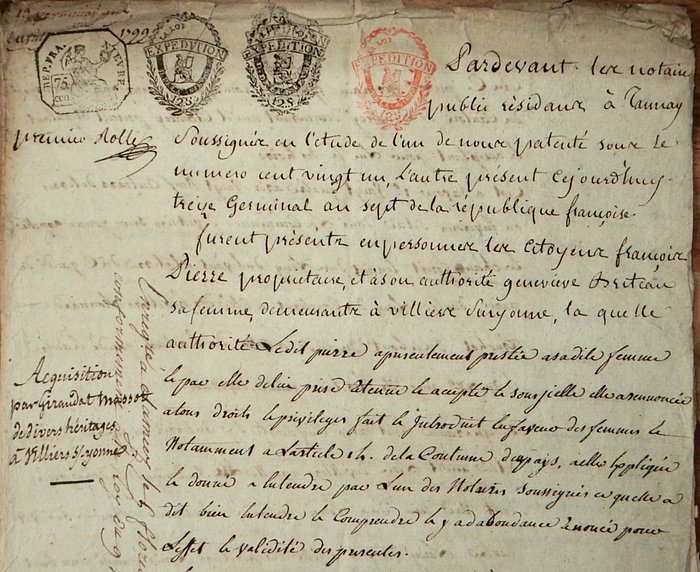 1799
REP. FRA.
75
CEN
LA LOI
EXPEDITION
1.25
LA LOI
EXPEDITION
1.25
LA LOI
EXPEDITION
1.25
Pardevant les notaire
publics résidans à Tannay
premier Rolle
Soussignés en l'étude de l'un de nous patenté sous le
numero cent vingt un, l'autre présent Cejourd'huy
treize Germinal an sept de la république françoise.
furent présents en personnes les Citoyens françois
Pierre propriétaire, et à son authorité geneviève
sa femme, demeurants à villiers Suryonne, la quelle
authorité Ledit pierre a présentement prestée a sadite femme
le par elle prise le acceptée le sous jcelle elle a renoncée
a tous droits le privileges fait le Introduit En faveur des femmes le
Notamment a L'article de la Coutume du pays, a elle Expliquée
le donné a Entendre par L'un des Notaires Soussignés ce quelle a
dit bien Entendre le Comprendre le y a dabondance Renoncé pour
L'effet le validité des presentes.
Acquisition
par Giraudat Massot
de divers héritages
à Villiers S. yonne
Enregistré à le 5
conformément